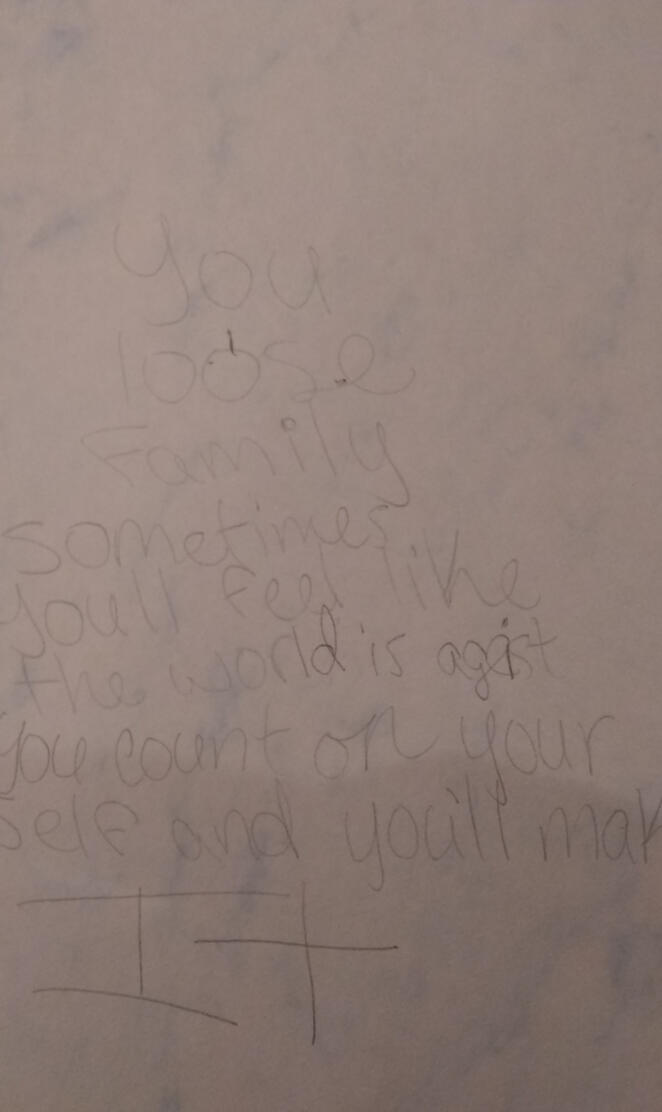 You
loose
Family
sometimes
you'll feel like
the world is agist
you count on your
self and you'll mak
It